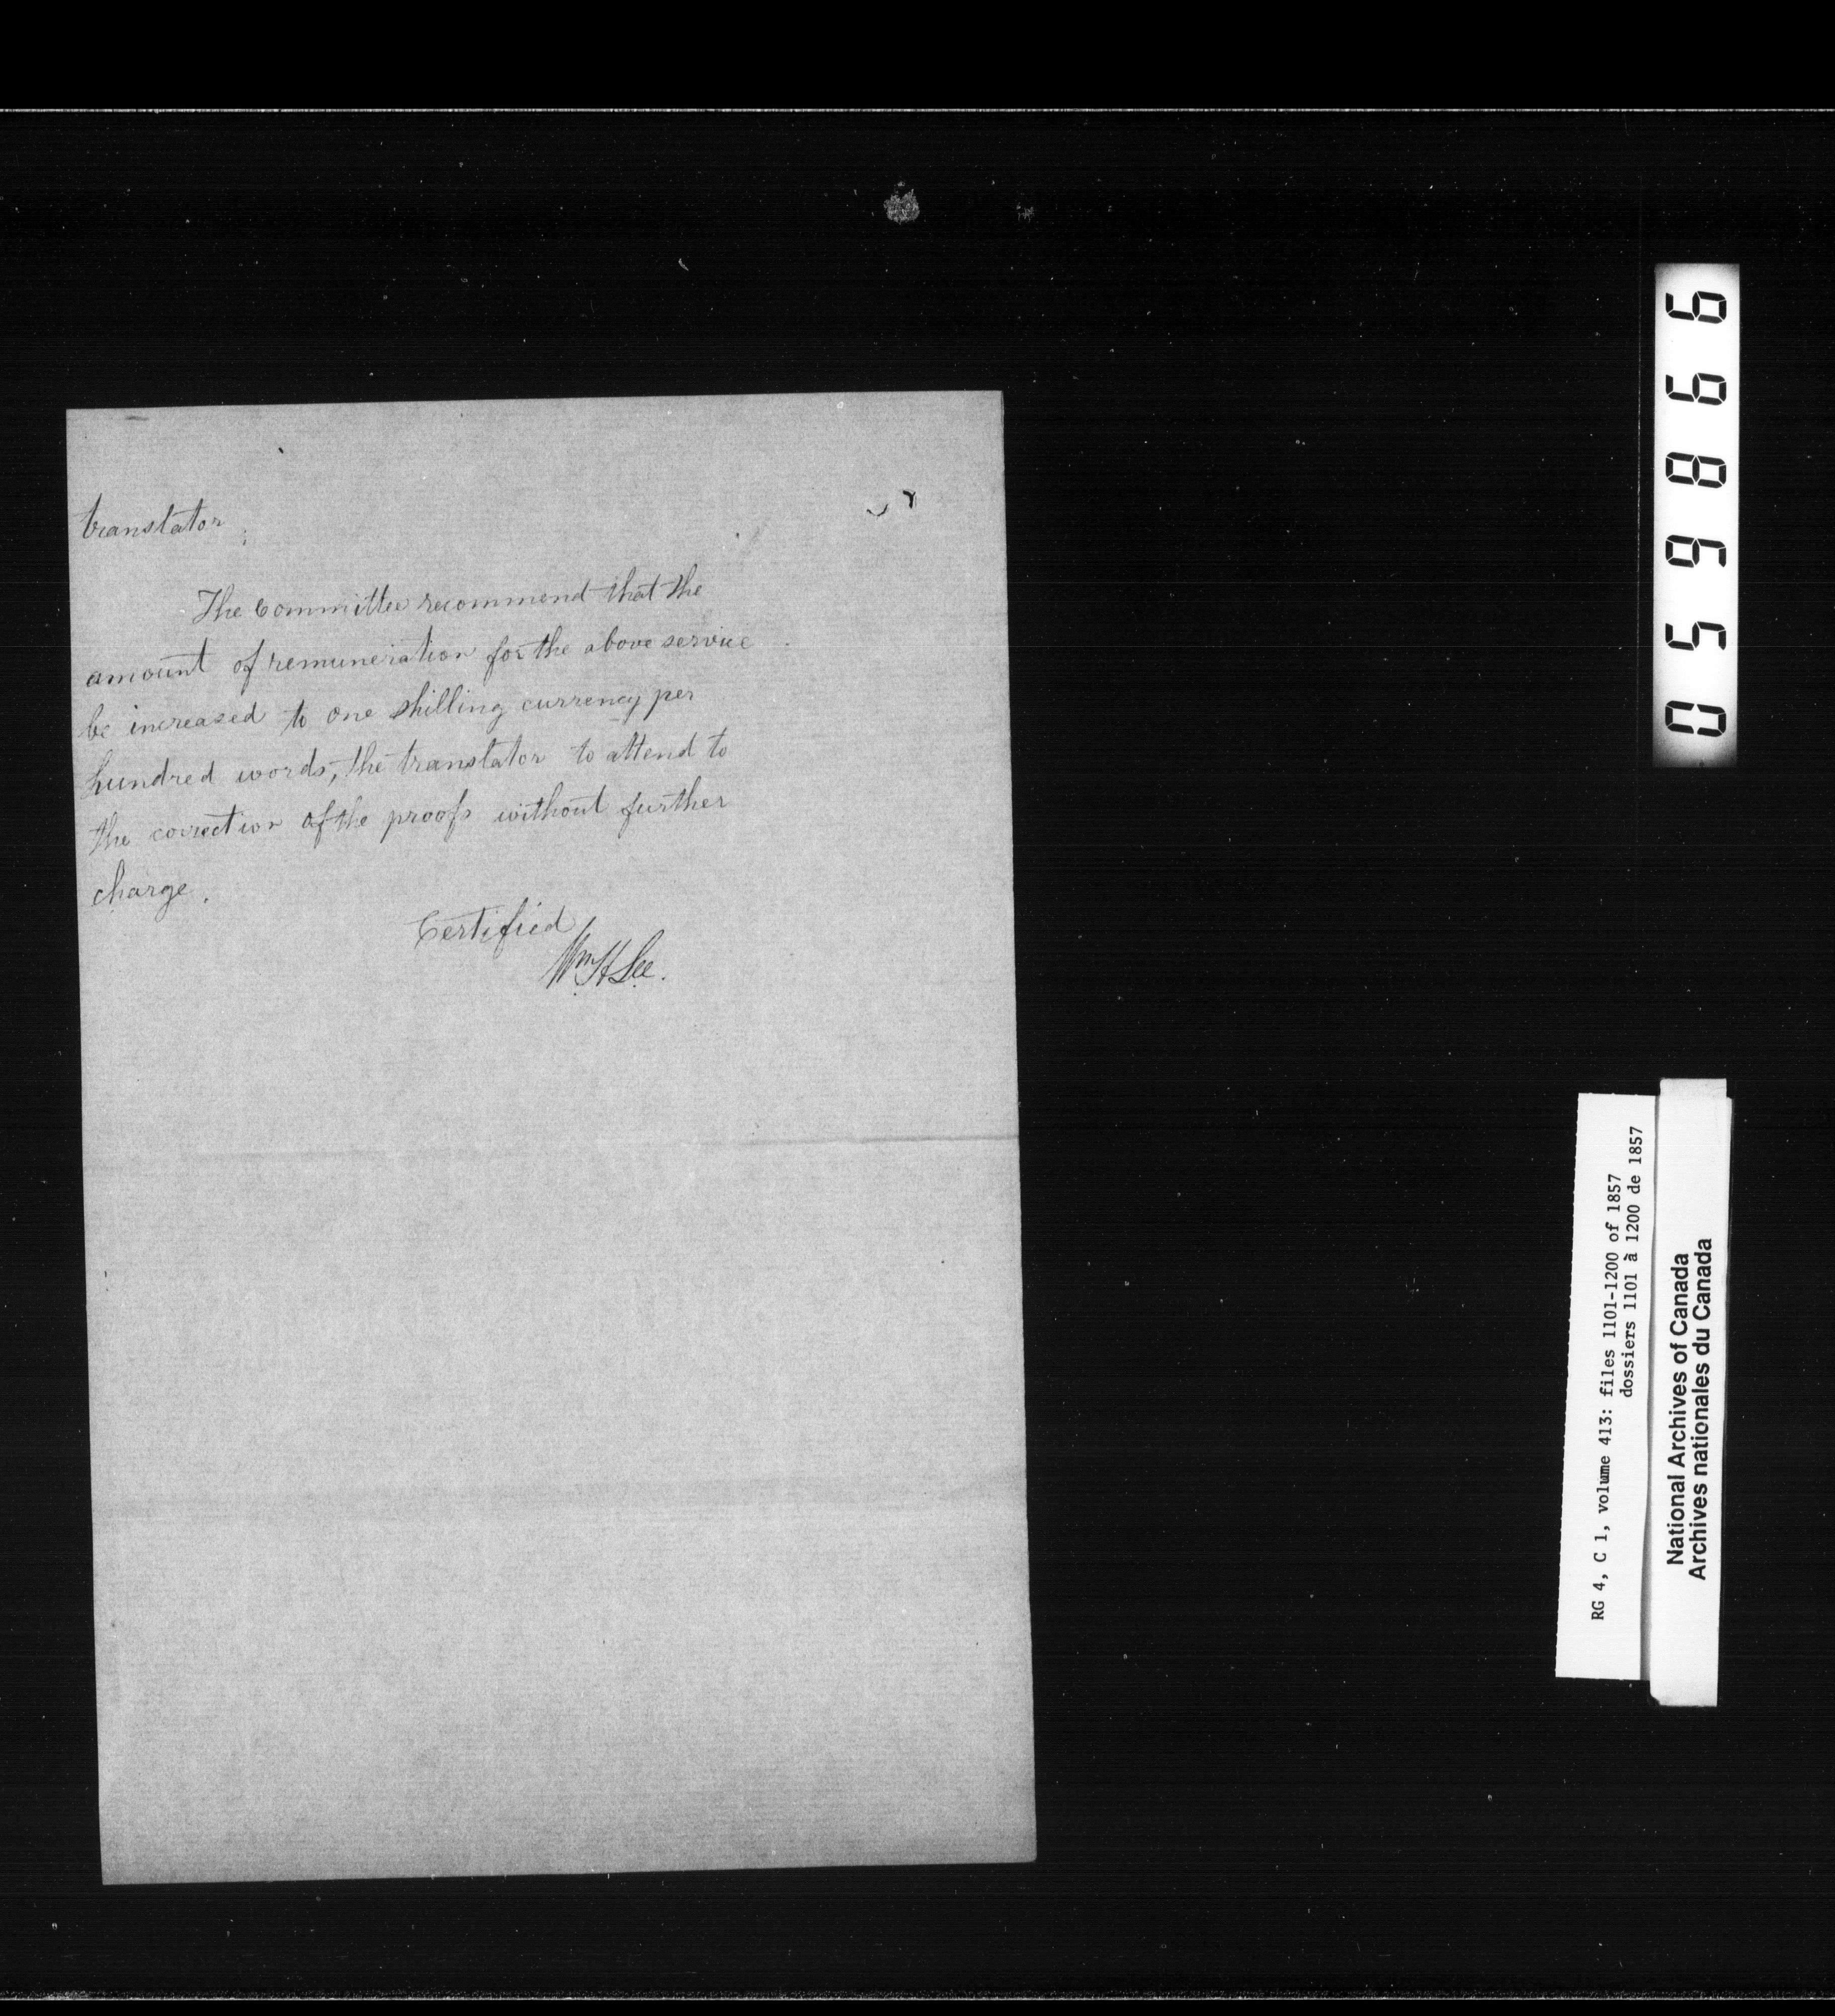 translator
The Committee recommend that the
amount of remuneration for the above service
be increased to one shilling currency per
hundred words, the translator to attend to
the correction of the proofs without further
charge.
Certified
Wm H Lee.
059866
RG 4, C 1, volume 413: files 1101-1200 of 1857
dossiers 1101 à 1200 de 1857
National Archives of Canada
Archives nationales du Canada